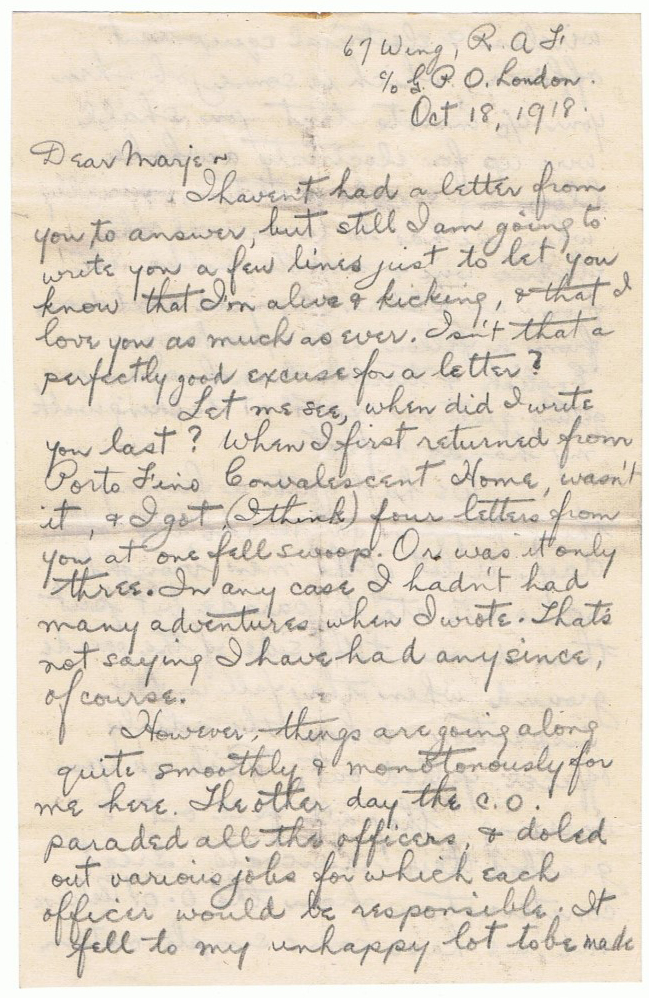 67 Wing, R.A.F.
c/o G.P.O. London.
Oct 18, 1918.
Dear Marje ~
I haven't had a letter from
you to answer, but still I am going to
write you a few lines just to let you
know that I'm alive & kicking, & that I
love you as much as ever. Isn't that a
perfectly good excuse for a letter?
Let me see, when did I write
you last? When I first returned from
Porto Fino Convalescent Home, wasn't
it, & I got (I think) four letters from
you at one fell swoop. Or was it only
three. In any case I hadn't had
many adventures when I wrote. That's
not saying I have had any since,
of course.
However, things are going along
quite smoothly & monotonously for
me here. The other day the C.O.
paraded all the officers, & doled
out various jobs for which each
officer would be responsible. It
fell to my unhappy lot to be made